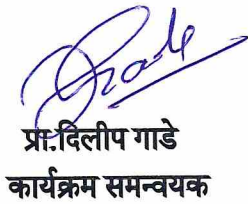 प्रा.दिलीप गाडे
कार्यक्रम समन्वयक